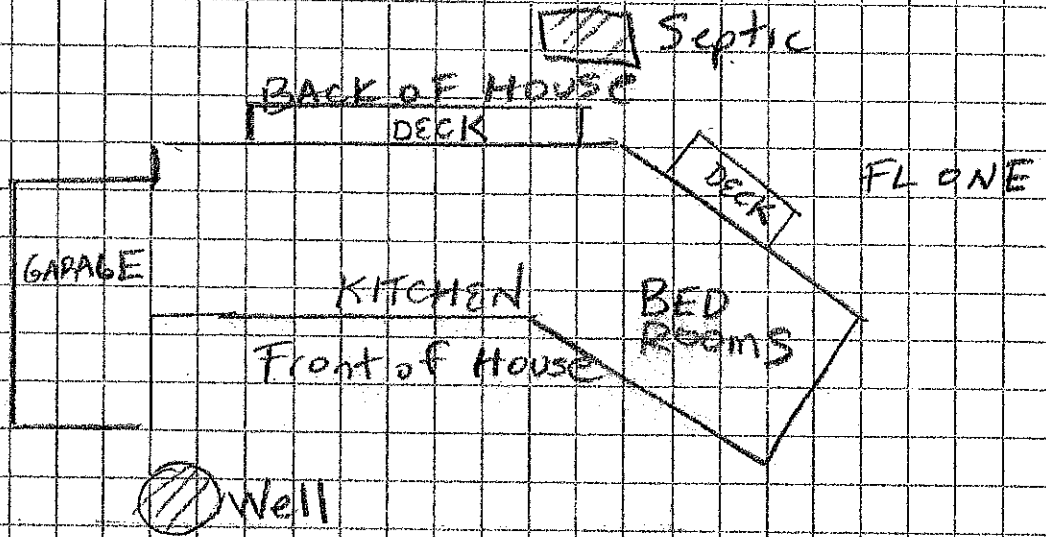 Septic
BACK OF HOUSE
DECK
DECK
FL ONE
GARAGE
KITCHEN
BED
ROOMS
Front of House
Well